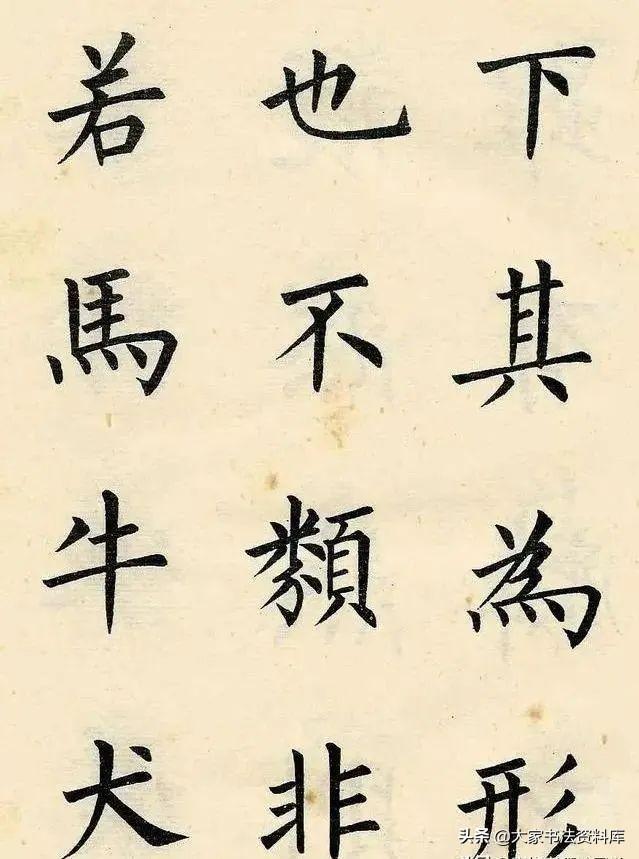 下其為形
也不類非
若馬牛犬
头条 @大家书法资料库